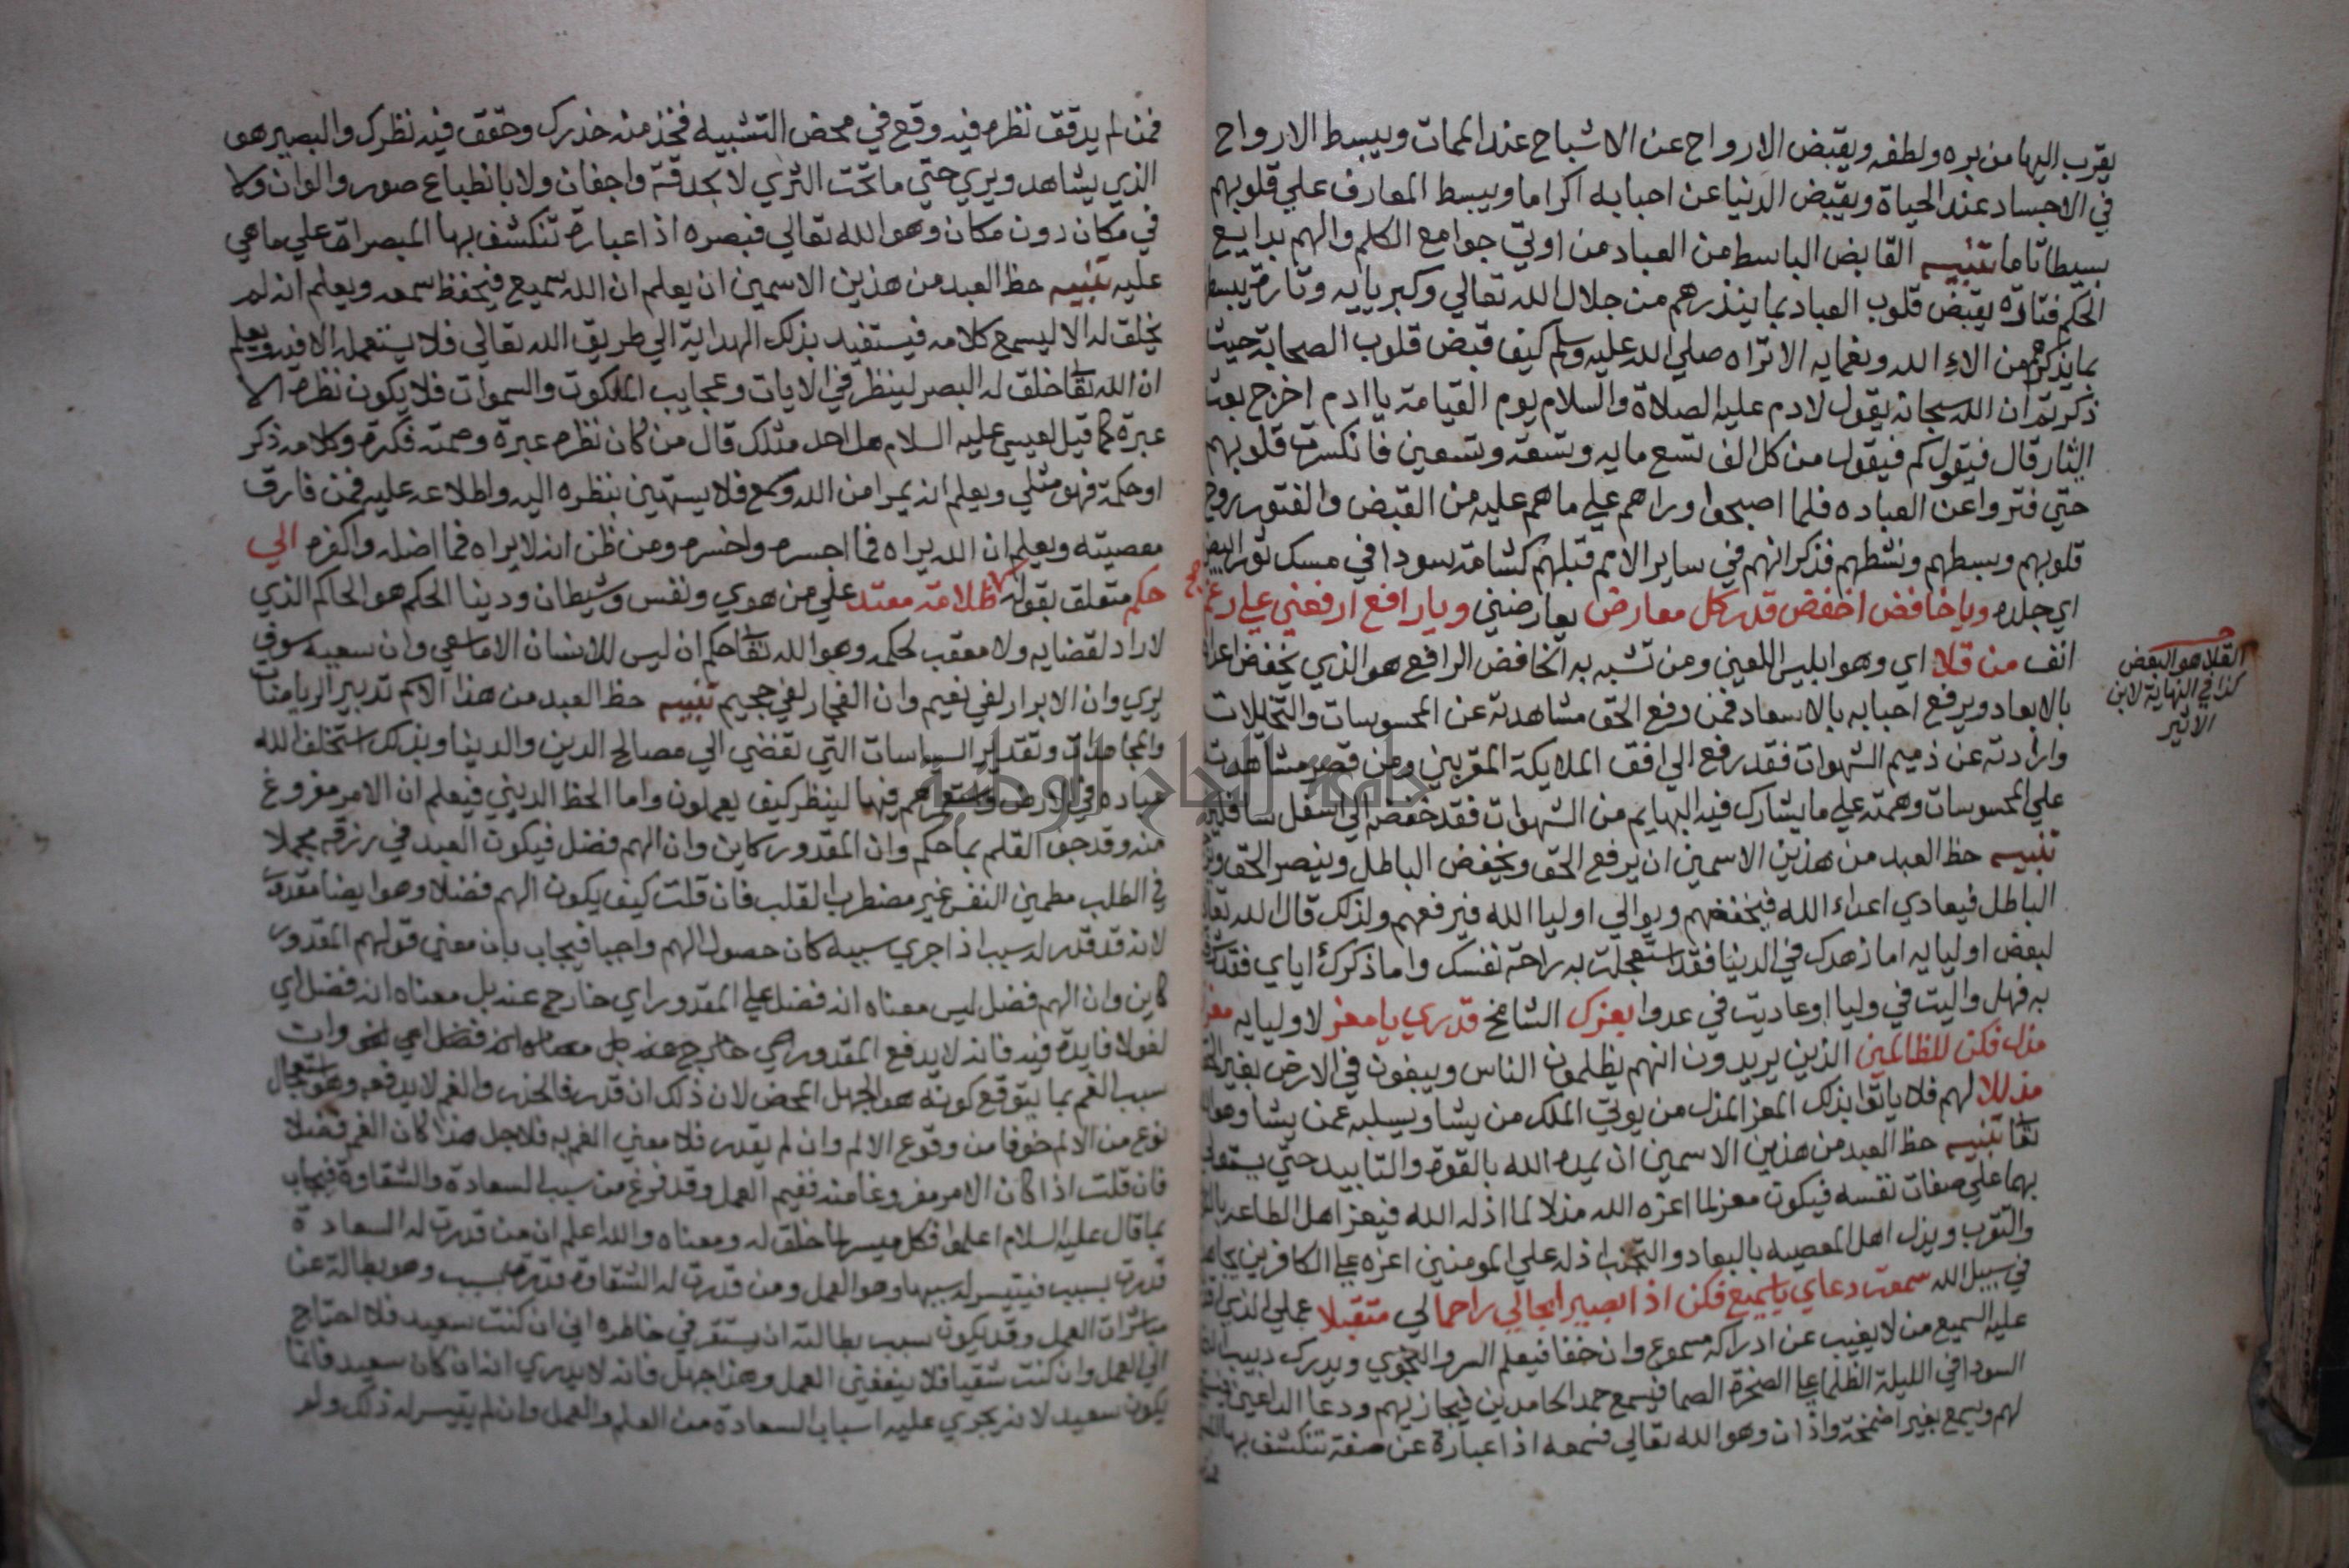 يقرب اليها من بره ولطفه ويقبض الارواح عن الاشباح عند الممات ويبسط الارواح
في الاجساد عند الحياة ويقبض الدنيا عن احبابه اكراما ويبسط المعارف علي قلوبهم
بسيطا تاما تنبيه القابض الباسط من العباد من اوتي جوامع الكلم والهم بدايع
الحكم فتارة يقبض قلوب العباد بما ينذرهم من جلال الله تعالي وكبريايه وتارة يبسط
بما يذكرهم من الاء الله ونعمايه الا تراه صلي الله عليه وسلم كيف قبض قلوب الصحابة حيث
ذكر تم ان الله سبحانه يقول لادم عليه الصلاة والسلام يوم القيامة يا ادم اخرج بعث
النار قال فيقول كم فيقول من كل الف تسع مايه وتسعة وتسعين فانكسرت قلوبهم
حتي فتروا عن العباده فلما اصبحوا وراهم علي ما هم عليه من القبض والفتور روح
قلوبهم وبسطهم ونشطهم فذكر انهم في ساير الامم قبلهم كشامة سودا في مسك ثور ابيض
اي جلده ويا خافض اخفض قدر كل معارض يعارضني ويا رافع ارفعني علي رغم
انف من قلا اي وهو ابليس اللعين ومن تشبه به الخافض الرافع هو الذي يخفض اعداه
بالابعاد ويرفع احبابه بالاسعاد فمن رفع الحق مشاهدته عن المحسوسات والتخيلات
وارادته عن ذميم الشهوات فقد رفع الي افق الملايكة المقربين ومن قصر مشاهدته
علي المحسوسات وهمته علي ما يشارك فيه البهايم من الشهوات فقد خفضه الي اسفل سافلين
تنبيه حظ العبد من هذين الاسمين ان يرفع الحق ويخفض الباطل وينصر الحق
الباطل فيعادي اعداء الله فيخفضهم ويوالي اوليا الله فيرفعهم ولذلك قال الله تعالي
لبعض اوليايه اما زهدك في الدنيا فقد استعجلت به راحة نفسك واما ذكرك اياي فقد
به فهل واليت في وليا اوعاديت في عدوا بعزك الشامخ قدري يا معز لاوليايه
مذل فكن للظالمين الذين يريدون انهم يظلمون الناس ويبغون في الارض بغير الحق
مذللا لهم فلا ياتوا بذلك المعز المذل من يوتي الملك من يشا ويسلبه عمن يشا وهو الله
تعا تنبيه حظ العبد من هذين الاسمين ان يمده الله بالقوة والتاييد حتي
بهما علي صفات نفسه فيكون معز لما اعزه الله مذلا لما اذله الله فيعز اهل الطاعه
والتقرب ويذل اهل المعصيه بالبعاد والتجنب اذله علي المومنين اعزه علي الكافرين
في سبيل الله سمعت دعاي يا سميع فكن اذا بصيرا بحالي راحما لي متقبلا عملي الذي
عليه السميع من لا يغيب عن ادراكه مسموع وان خفا فيعلم السر والنجوي ويدرك دبيب
السودا في الليلة الظلما علي الصخرة الصما فيسمع حمد الحامدين فيجازيهم ودعا الداعين
لهم ويسمع بغير اضمخة واذان وهو الله تعالي فسمعه اذا عبارة عن صفة تنكشف بها
القلا هو البغض
كذا في النهاية لابن
الاثير
فمن لم يدقق نظره فيه وقع في محض التشبيه فخذ منه حذرك وحقق فيه نظرك والبصير هو
الذي يشاهد ويري حتي ما تحت الثري لا بحدقة واجفان ولا بانطباع صور والوان ولا
في مكان دون مكان وهو الله تعالي فبصره اذا عبارة تنكشف بها المبصرات علي ما هي
عليه تنبيه حظ العبد من هذين الاسمين ان يعلم ان الله سميع فيحفظ سمعه ويعلم انه لم
يخلق له الا ليسمع كلامه فيستفيد بذلك الهداية الي طريق الله تعالي فلا يستعمله الا فيه ويعلم
ان الله تعا خلق له البصر لينظر في الايات وعجايب الملكوت والسموات فلا يكون نظره الا
عبرة كما قيل لعيسي عليه السلام هل احد مثلك قال من كان نظره عبرة وصمته فكرة وكلامه ذكر
او حكمة فهو مثلي ويعلم انه بمرا من الله وسمع فلا يستهين بنظره اليه واطلاعه عليه فمن قارف
معصيته ويعلم ان الله يراه فما اجسره واخسره ومن ظن انه لا يراه فما اضله واكفره الي
حكم متعلق بقوله ظلامة معتد علي من هوي ونفس وشيطان ودينا الحكم هو الحاكم الذي
لا راد لقضايه ولا معقب لحكمه وهو الله تعا حكم ان ليس للانسان الا ما سعي وان سعيه سوف
يري وان الابرار لفي نعيم وان الفجار لفي جحيم تنبيه حظ العبد من هذا الاسم تدبير الرياضات
والمجاهدات وتقدير السياسات التي تفضي الي مصالح الدين والدنيا وبذلك استخلف الله
عباده في الارض واستعمرهم فيها لينظر كيف يعملون واما الحظ الديني فيعلم ان الامر مفروغ
منه وقد جف القلم بما حكم وان المقدور كاين وان الهم فضل فيكون العبد في رزقه مجملا
في الطلب مطمين النفس غير مضطرب القلب فان قلت كيف يكون الهم فضلا وهو ايضا مقدور
لانه قد قدر له سبب اذا جري سببه كان حصول الهم واجبا فيجاب بان معني قولهم المقدور
كاين وان الهم فضل ليس معناه انه فضل علي المقدور اي خارج عنه بل معناه انه فضل اي
لغو لا فايدة فيه فانه لا يدفع المقدور
سبب الغم بما يتوقع كونه هو الجهل المحض لان ذلك ان قدر فالحذر والغم لا يدفعه وهو استعجال
نوع من الالم خوفا من وقوع الالم وان لم يقدر فلا معني الغم به فلاجل هذا كان الغم فضلا
فان قلت اذا كان الامر مفروغا منه ففيم العمل وقد فرغ من سبب السعادة والشقاوة فيجاب
بما قال عليه السلام اعملوا فكل ميسر لما خلق له ومعناه والله اعلم ان من قدرت له السعادة
قدرت بسبب فيتيسر له سببها وهو العمل ومن قدرت له الشقاوة قدرت بسبب وهو بطالة عن
العمل وقد يكون سبب بطالته ان يستقر في خاطره اني ان كنت سعيد فلا احتاج
الي العمل وان كنت شقيا فلا ينفعني العمل وهذا جهل فانه لا يدري انه ان كان سعيد فانما
يكون سعيد لانه يجري عليه اسباب السعادة من العلم والعمل وان لم يتيسر له ذلك ولم
جامعة النجاح الوطنية